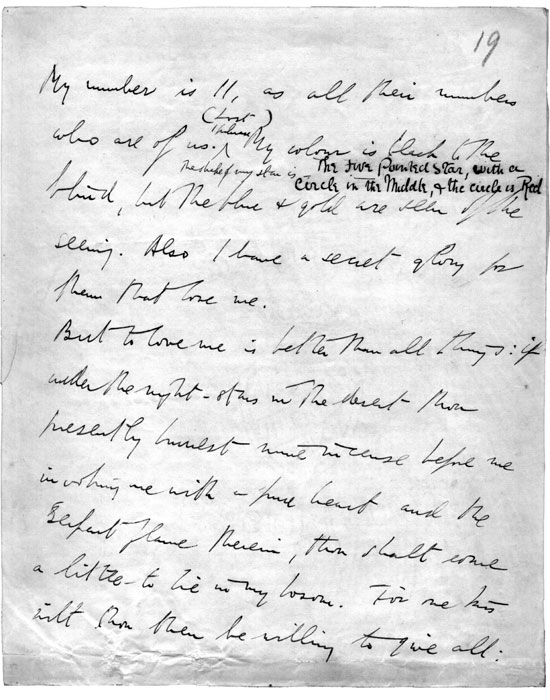 19
My number is 11, as all their numbers
(Lost 1 phrase)
who are of us. My colour is black to the
The shape of my star is — The Five Pointed Star, with a
Circle in the Middle, & the circle is Red
blind, but the blue & gold are seen of the
seeing. Also I have a secret glory for
them that love me.
But to love me is better than all things: if
under the night-stars in the desert thou
presently burnest mine incense before me
invoking me with a pure heart and the
Serpent flame therein, thou shalt come
a little to lie in my bosom. For one kiss
wilt thou then be willing to give all: